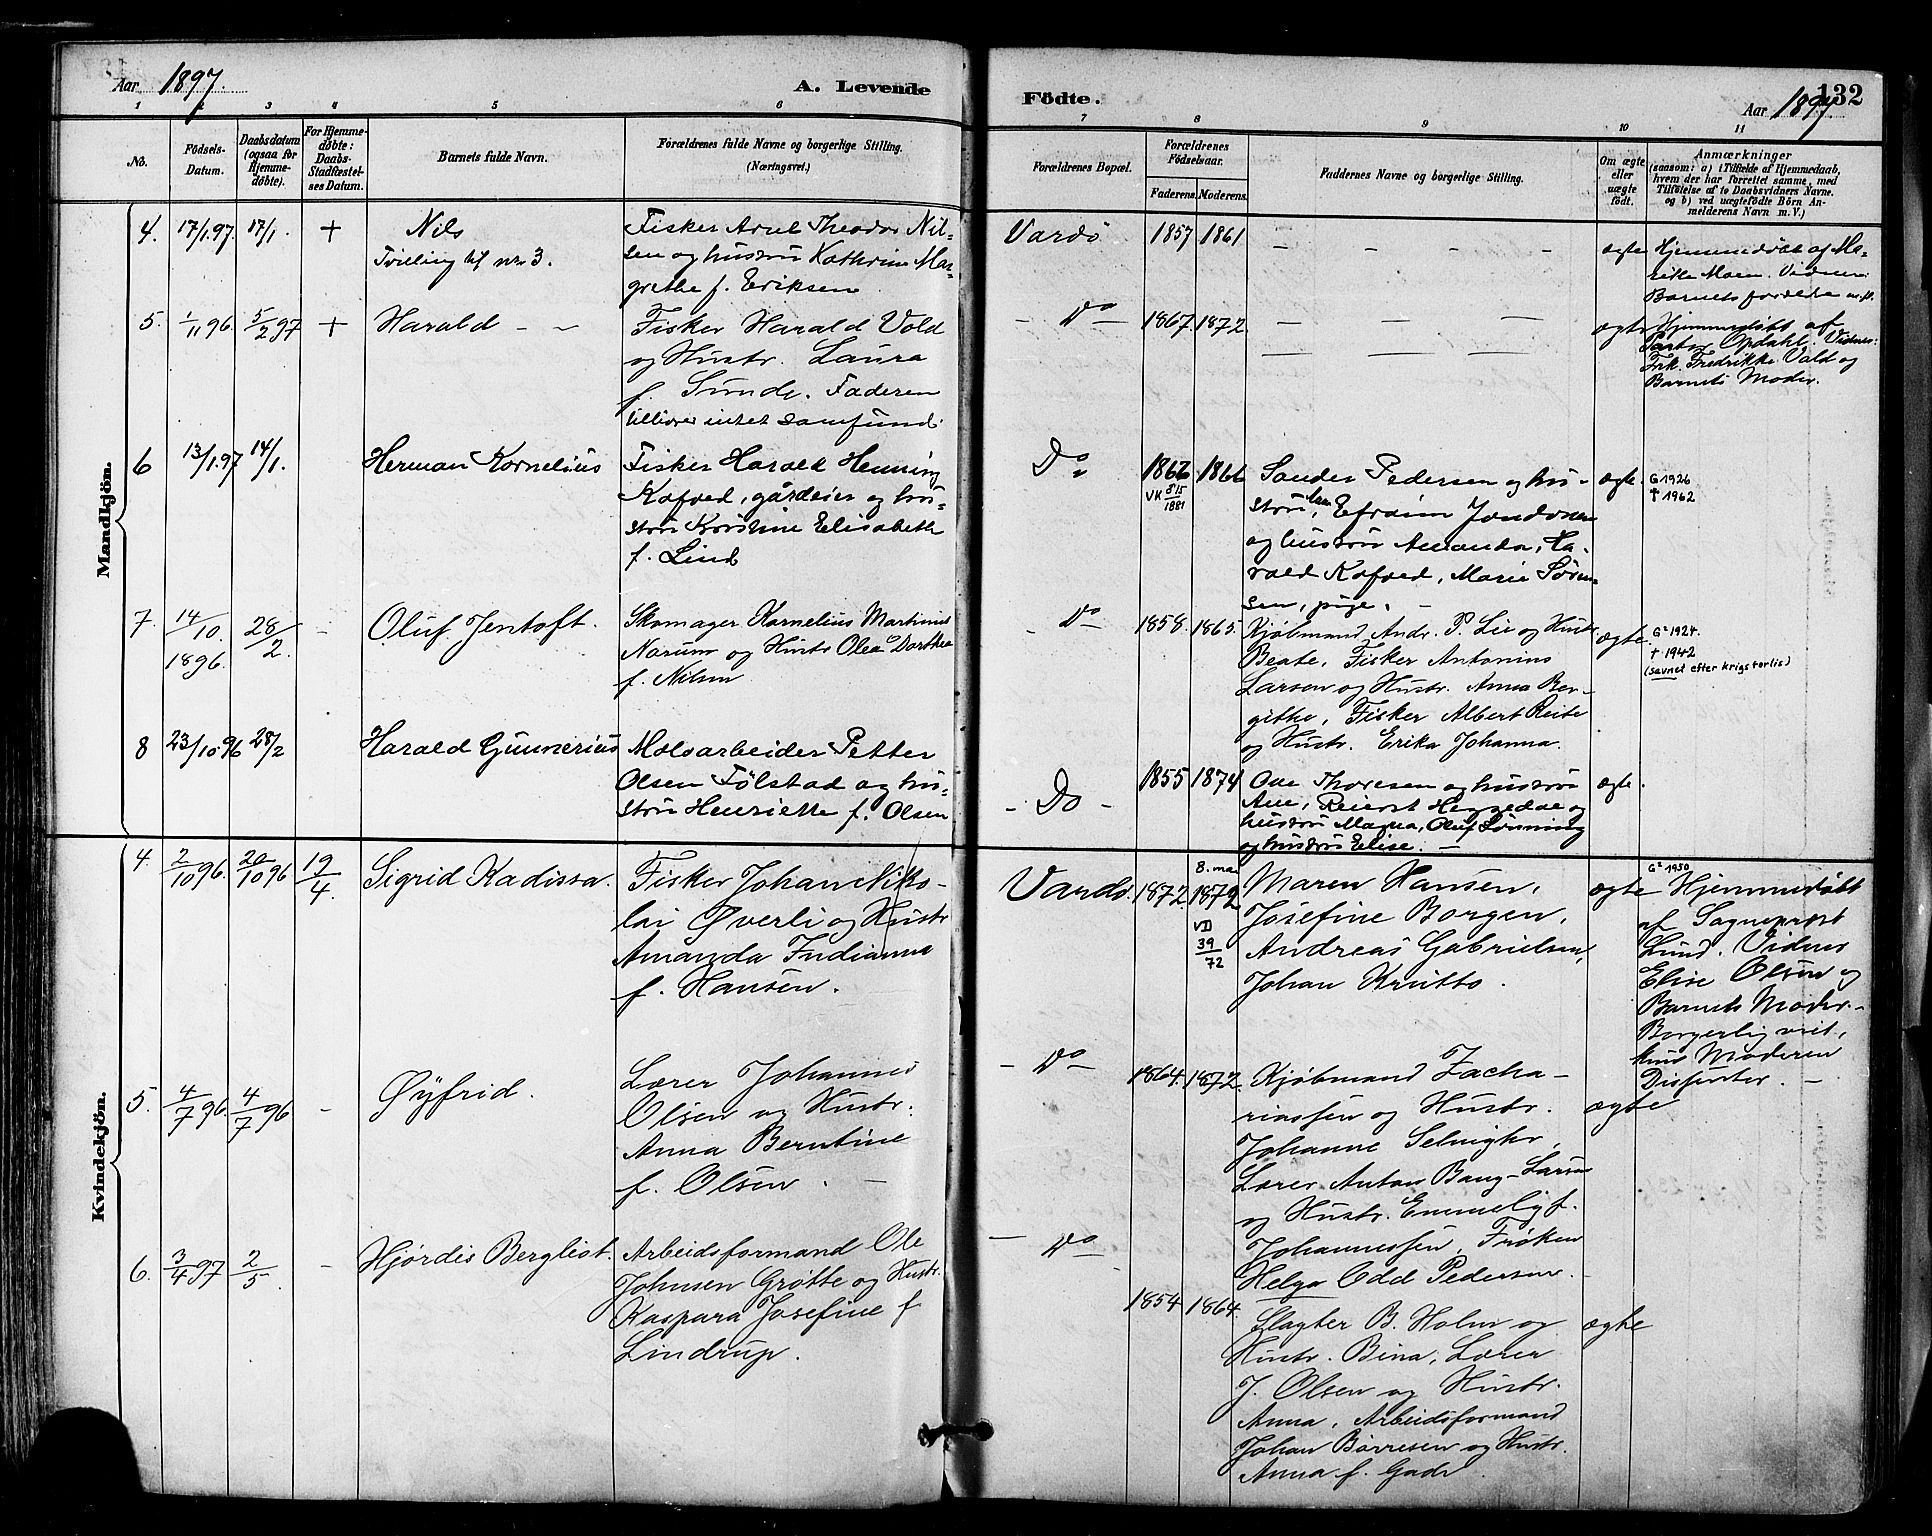 Aar 1897.
A. Levende
Födte.
132
Aar 1897
1 2 3 4 5 6 7 8 9 10 11
No.
Födsels-Datum.
Daabsdatum (ogsaa for Hjemme-døbte).
For Hjemme-døbte: Daabs-Stadfæstel-ses Datum.
Barnets fulde Navn.
Forældrenes fulde Navne og borgerlige Stilling. (Næringsvei.)
Forældrenes Bopæl.
Forældrenes Fødselsaar.
Faderens. Moderens.
Faddernes Navne og borgerlige Stilling.
Om ægte eller uægte født.
Anmærkninger
(saasom: a) i Tilfælde af Hjemmedaab, hvem der har forrettet samme, med Tilføielse af to Daabsvidners Navne. og b) ved uægtefødte Börn Anmelderens Navn m. V.)
Mandkjön.
4. 17/1.97. 17/1. +
Nils
Tvilling til nr. 3.
Fisker Theodor Nil-
sen og hustru Kathrine Mar-
grethe f. Eriksen
Vardø 1857 1861
— — — —
ægte
Hjemmedøbt af Ma-
Moen. Vidner:
Barnets forældre
5. 1/11 96. 5/2 97 +
Harald - -
Fisker Harald Vold
og Hustr. Laura
f. Sunde. Faderen
tilhører intet samfund.
- Do - 1867. 1872.
— — — —
— — — —
ægte
Hjemmedøbt af
Pastor Opdahl. Vidner:
Frk. Fredrikke Vald og
Barnets Moder.
6 13/1.97 14/1.
Herman Kornelius
Fisker Harald Henning
Kofoed, gårdeier og hu-
stru Kirstine Elisabeth
f. Lind
Do 1866
VK 1881
Sander Pedersen og hu-
stru, Efraim
og hustru Amanda, Ha-
rald Kofoed, Marie Søren-
sen, pige. -
ægte.
G 1926
† 1962
7. 14/10. 1896. 28/2. -
Oluf Jentoft.
Skomager Kornelius Martinus
Narum og Hustr Olea Dorthea
f. Nilsen
- Do - 1858. 1865.
Kjøbmand Andr. P. Lie og Hustr.
Beate, Fisker Antonius
Larsen og Hustr. Anna Ber-
githe, Fisker Albert Reite
og Hustr. Erika Johanna.
ægte.
G² 1924.
† 1942
(savnet efter krigsforlis)
8 23/10.96 28/2
Harald Gunnerius
Moloarbeider Petter
Olsen Følstad og hu-
stru Henriette f. Olsen
- Do - 1855 1874
Ove Thoresen og hustru
Ane, Reierst Heggedae og
hustru Magna, Oluf Lønning
og hustru Elise. -
ægte.
Kvindekjön.
4. 2/10 96. 20/10 96 19/4.
Sigrid Kadissa.
Fisker Johan Niko-
lai Øverli og Hustr
Amanda Indianna
f. Hansen.
Vardø. 1872 8. mai 1872
VD 39/72
Maren Hansen,
Josefine Borgen,
Andreas Gabrielsen,
Johan Krutto.
ægte
G² 1950
Hjemmedøbt
af Sognepræst
Lund. Vidner
Elise Olsen og
Barnets Moder.-
Borgerlig viet,
kun Moderen
Dissenter. -
5. 4/7 96. 4/7 96 -
Øyfrid.
Lærer Johannes
Olsen og Hustr.
Anna Berntine
f. Olsen. -
- Do - 1864. 1872.
Kjøbmand Zacha-
riassen og Hustr.
Johanne
Lærer Anton Bang-Larsen
og Hustr. Emmely f.
Johannessen, Frøken
Helga Odd Pedersen.
ægte
6. 3/4 97 2/5 -
Hjørdis Bergliot.
Arbeidsformand Ole
Johnsen Grøtte og Hustr.
Kaspara Josefine f
Lindrup.
- Do -
1854 1864.
Slagter B. Holm og
Hustr. Bina, Lærer
J. Olsen og Hustr.
Anna, Arbeidsformand
Johan Børresen og Hustr.
Anna f. Gade.
ægte